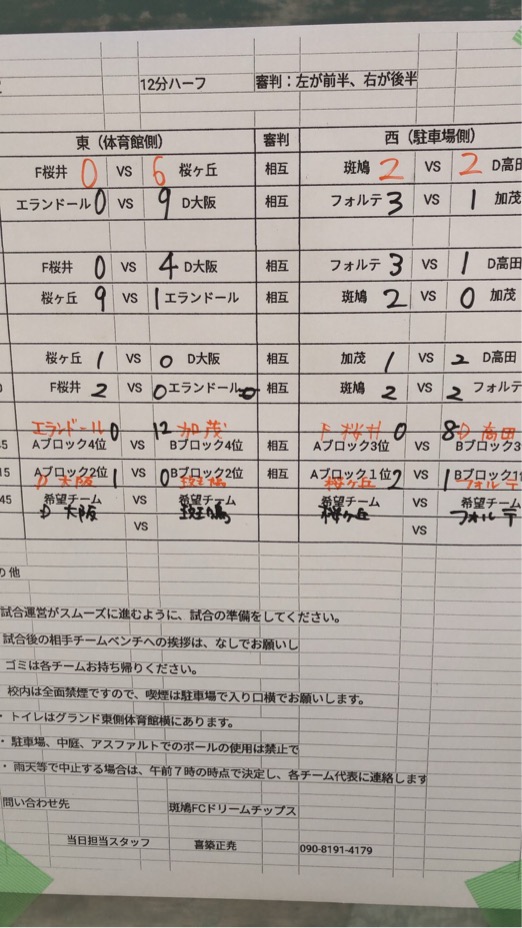 12分ハーフ 審判：左が前半、右が後半
東（体育館側） 審判 西（駐車場側）
F桜井 0 VS 6 桜ヶ丘 相互 斑鳩 2 VS 2 D高田
エランドール 0 VS 9 D大阪 相互 フォルテ 3 VS 1 加茂
F桜井 0 VS 4 D大阪 相互 フォルテ 3 VS 1 D高田
桜ヶ丘 9 VS 1 エランドール 相互 斑鳩 2 VS 0 加茂
桜ヶ丘 1 VS 0 D大阪 相互 加茂 1 VS 2 D高田
F桜井 2 VS 0 エランドール 相互 斑鳩 2 VS 2 フォルテ
エランドール 0 12 加茂 F桜井 0 8 D高田
45 Aブロック4位 VS Bブロック4位 相互 Aブロック3位 VS Bブロック3
15 Aブロック2位 1 VS 0 Bブロック2位 相互 Aブロック1位 2 VS 1 Bブロック1
D大阪 斑鳩 桜ヶ丘 フォルテ
45 希望チーム VS 希望チーム 希望チーム VS 希望チーム
D大阪 斑鳩 桜ヶ丘 フォルテ
VS VS
の他
試合運営がスムーズに進むように、試合の準備をしてください。
試合後の相手チームベンチへの挨拶は、なしでお願いし
ゴミは各チームお持ち帰りください。
校内は全面禁煙ですので、喫煙は駐車場で入り口横でお願いします。
・トイレはグランド東側体育館横にあります。
・駐車場、中庭、アスファルトでのボールの使用は禁止で
・雨天等で中止する場合は、午前７時の時点で決定し、各チーム代表に連絡します
問い合わせ先 斑鳩FCドリームチップス
当日担当スタッフ 喜築正尭 090-8191-4179